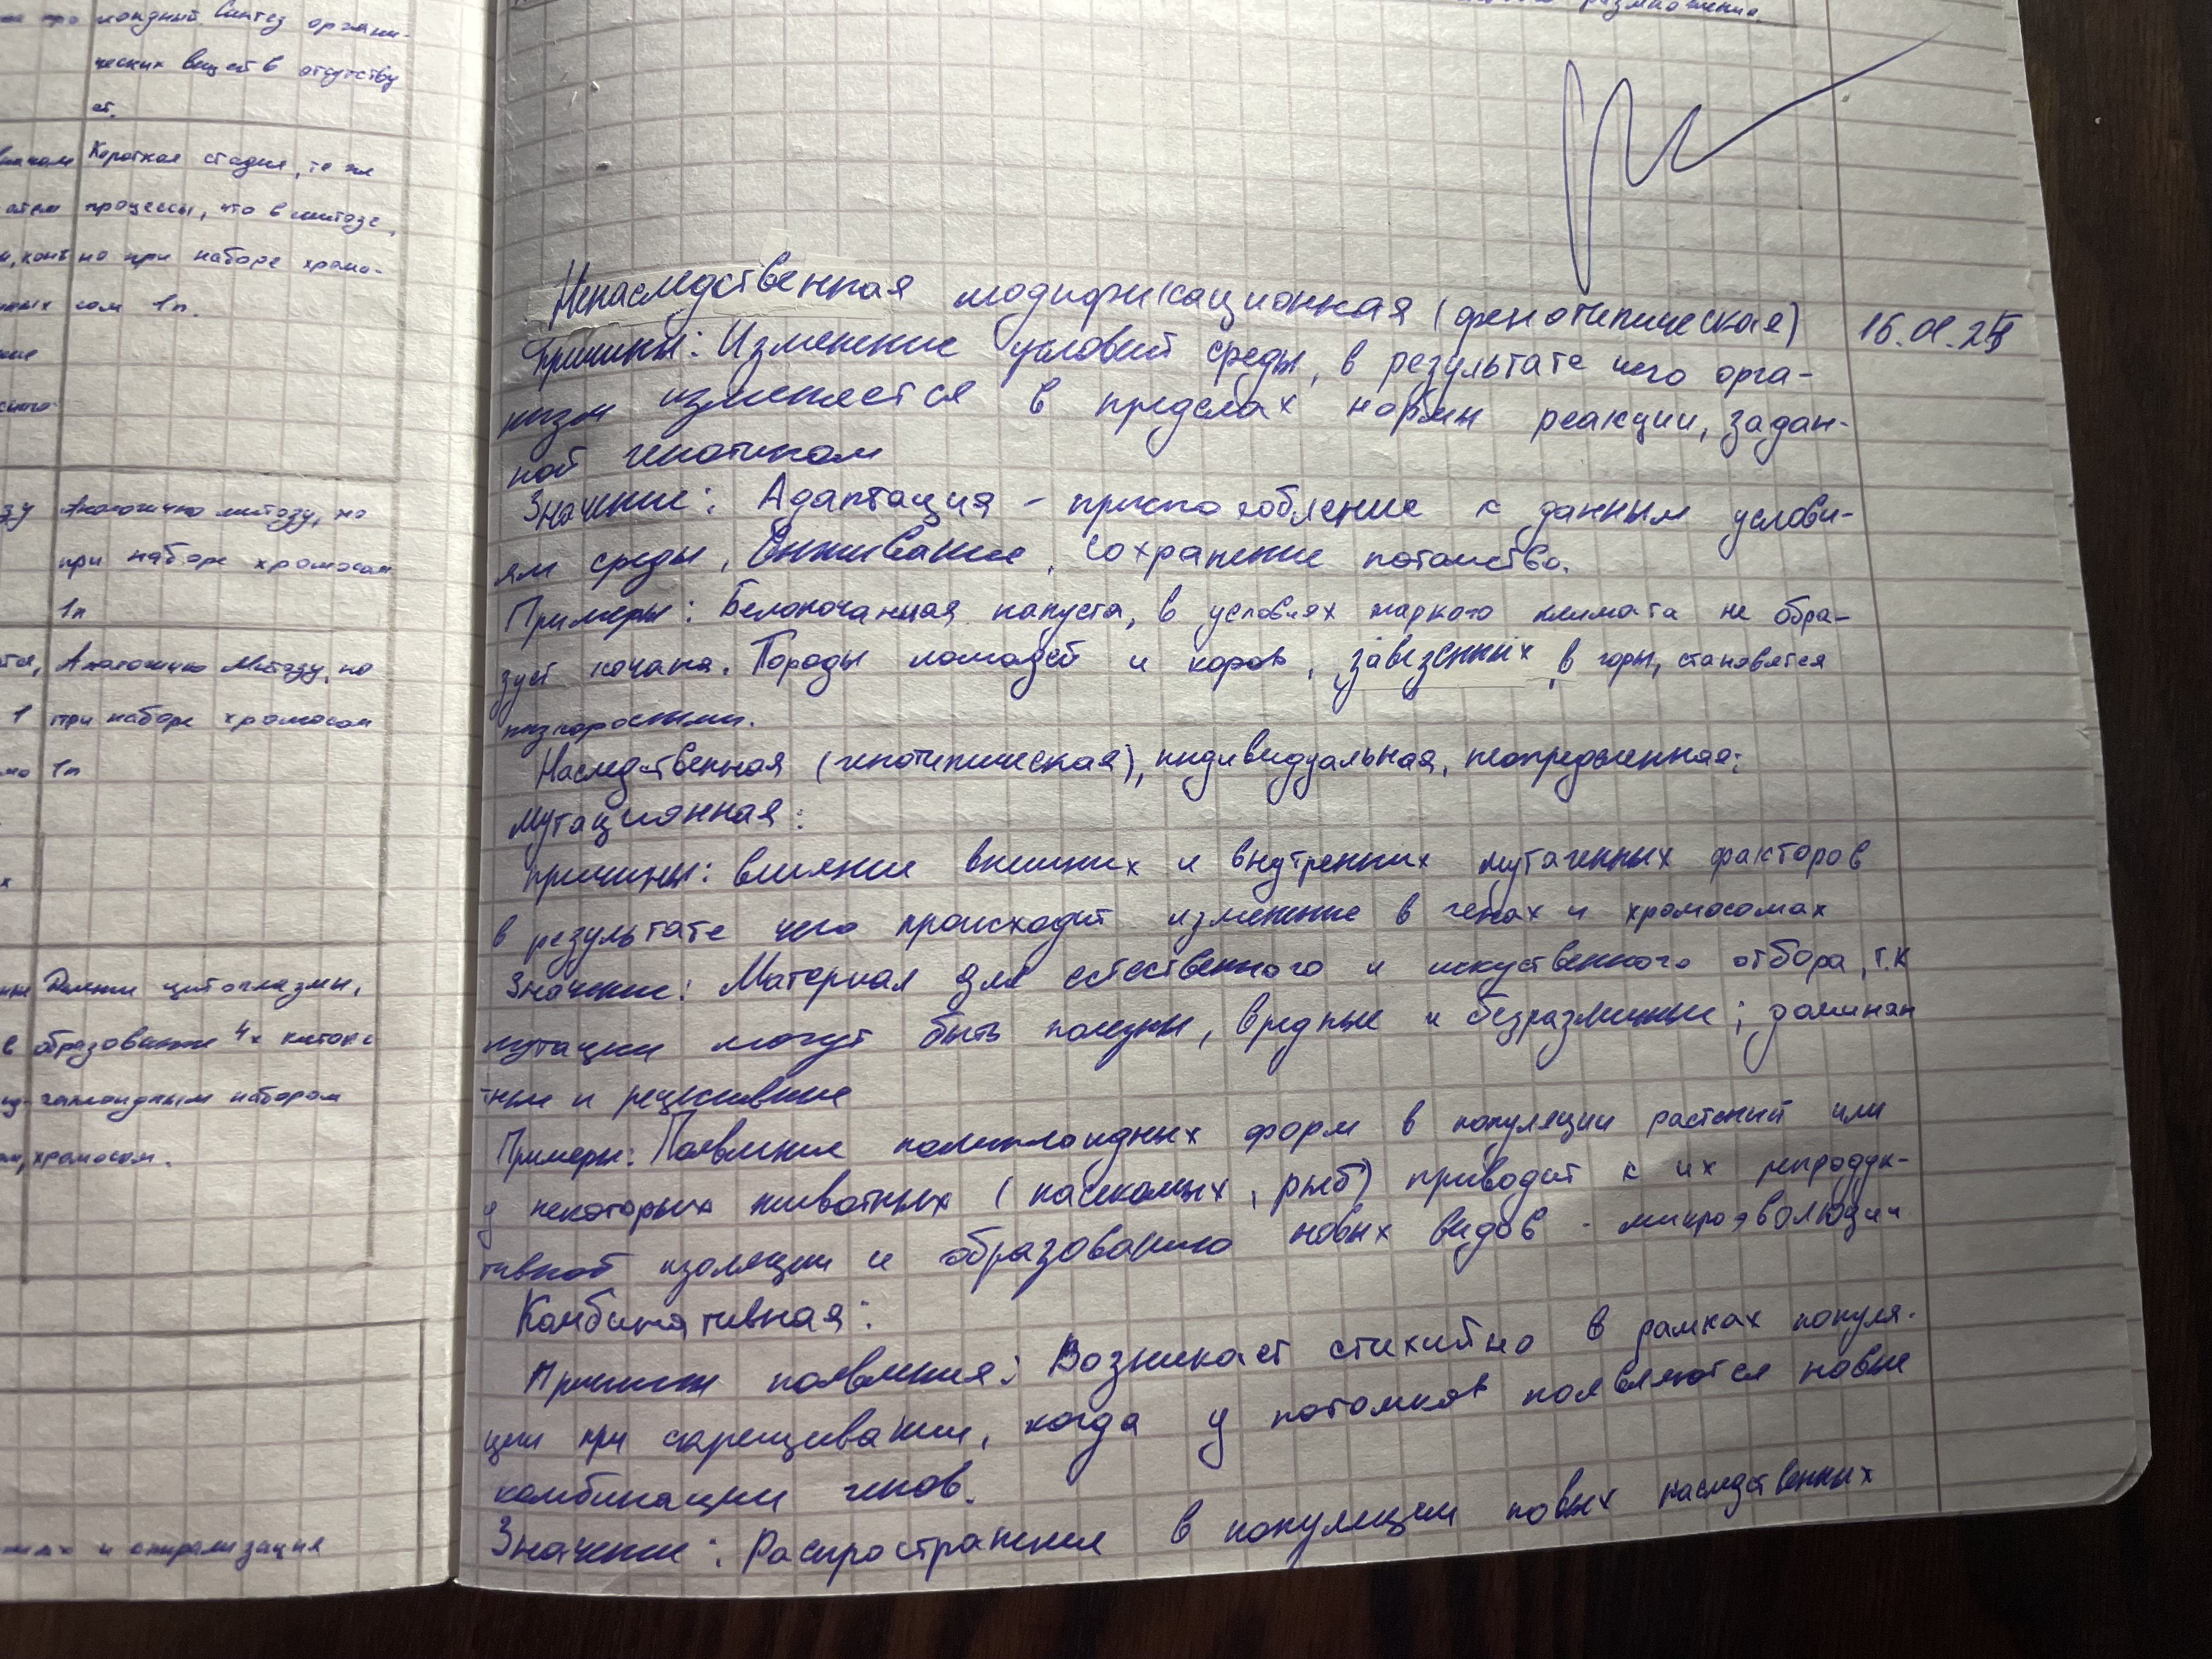 размножение
лоидный синтез органи-
ческих веществ отсутству
ет.
Короткая стадия, те же
процессы, что в митозе,
но при наборе хромо-
сом 1n.
Аналогично митозу, но
при наборе хромосом
1n
Аналогично Митозу, но
при наборе хромосом
1n
Деление цитоплазмы,
образование 4х клеток с
гаплоидным набором
хромосом.
и спирализация
Ненаследственная модификационная (фенотипическая)
Причины: Изменение условий среды, в результате чего орга-
низм изменяется в пределах нормы реакции, задан-
ной генотипом
Значение: Адаптация - приспособление к данным услови-
ям среды, выживание, сохранение потомства.
Примеры: Белокочанная капуста, в условиях жаркого климата не обра-
зует кочана. Породы лошадей и коров, завезенных в горы, становятся
низкорослыми.
Наследственная (генотипическая), индивидуальная, неопределенная:
Мутационная:
причины: влияние внешних и внутренних мутагенных факторов
в результате чего происходит изменение в генах и хромосомах
Значение: Материал для естественного и искуственного отбора, т.к
мутации могут быть полезны, вредные и безразличные; доминан
тные и рецисивные
Примеры: Появление полиплоидных форм в популяции растений или
у некоторых животных (насекомых, рыб) приводит к их репродук-
тивной изоляции и образованию новых видов - микроэволюции
Комбинативная:
Причины появления: Возникает стихийно в рамках популя-
ции при скрещивании, когда у потомков появляются новые
комбинации генов.
Значение: Распространение в популяции новых наследственных